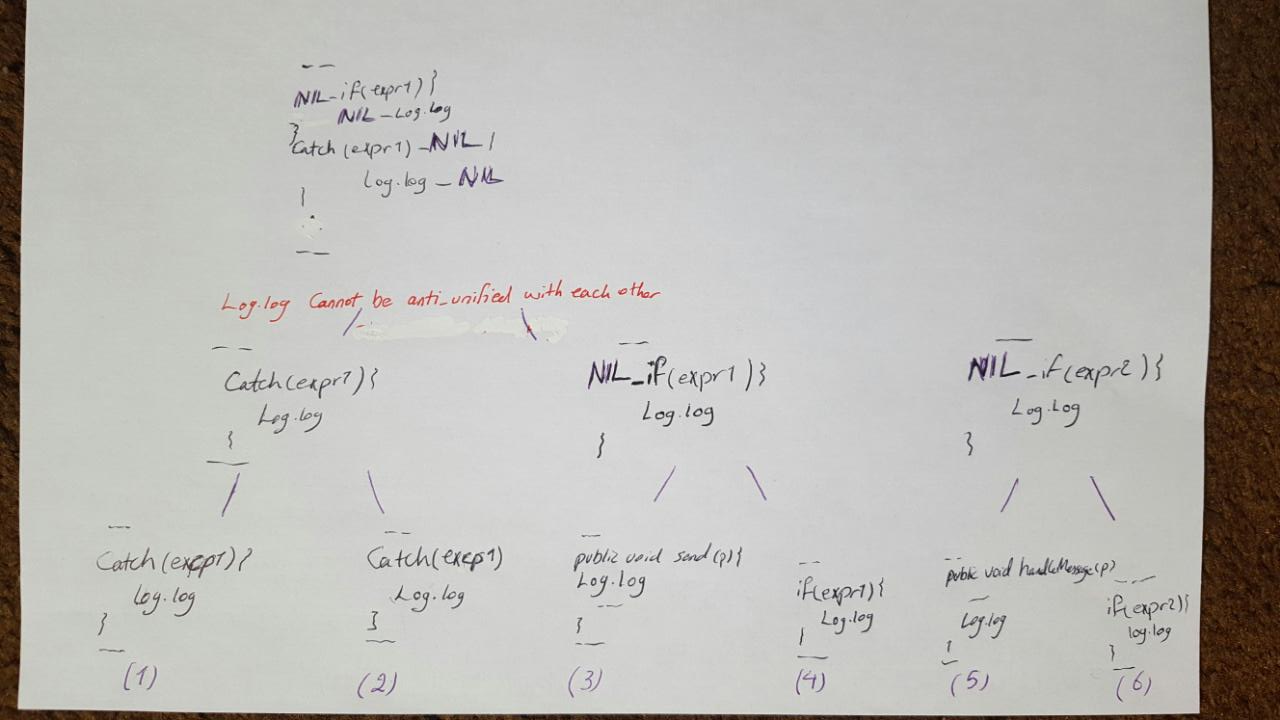 NIL-if(expr1) {
NIL-Log.log
}
Catch(expr1)-NIL {
Log.log-NIL
}
Log.log Cannot be anti-unified with each other
Catch(expr1) {
Log.log
}
NIL-if(expr1) {
Log.log
}
NIL-if(expr2) {
Log.log
}
Catch(excp1) {
Log.log
}
(1)
Catch(excp1)
Log.log
}
(2)
public void send(p) {
Log.log
}
(3)
if(expr1) {
Log.log
}
(4)
public void handleMessage(p)
Log.log
}
(5)
if(expr2) {
log.log
}
(6)